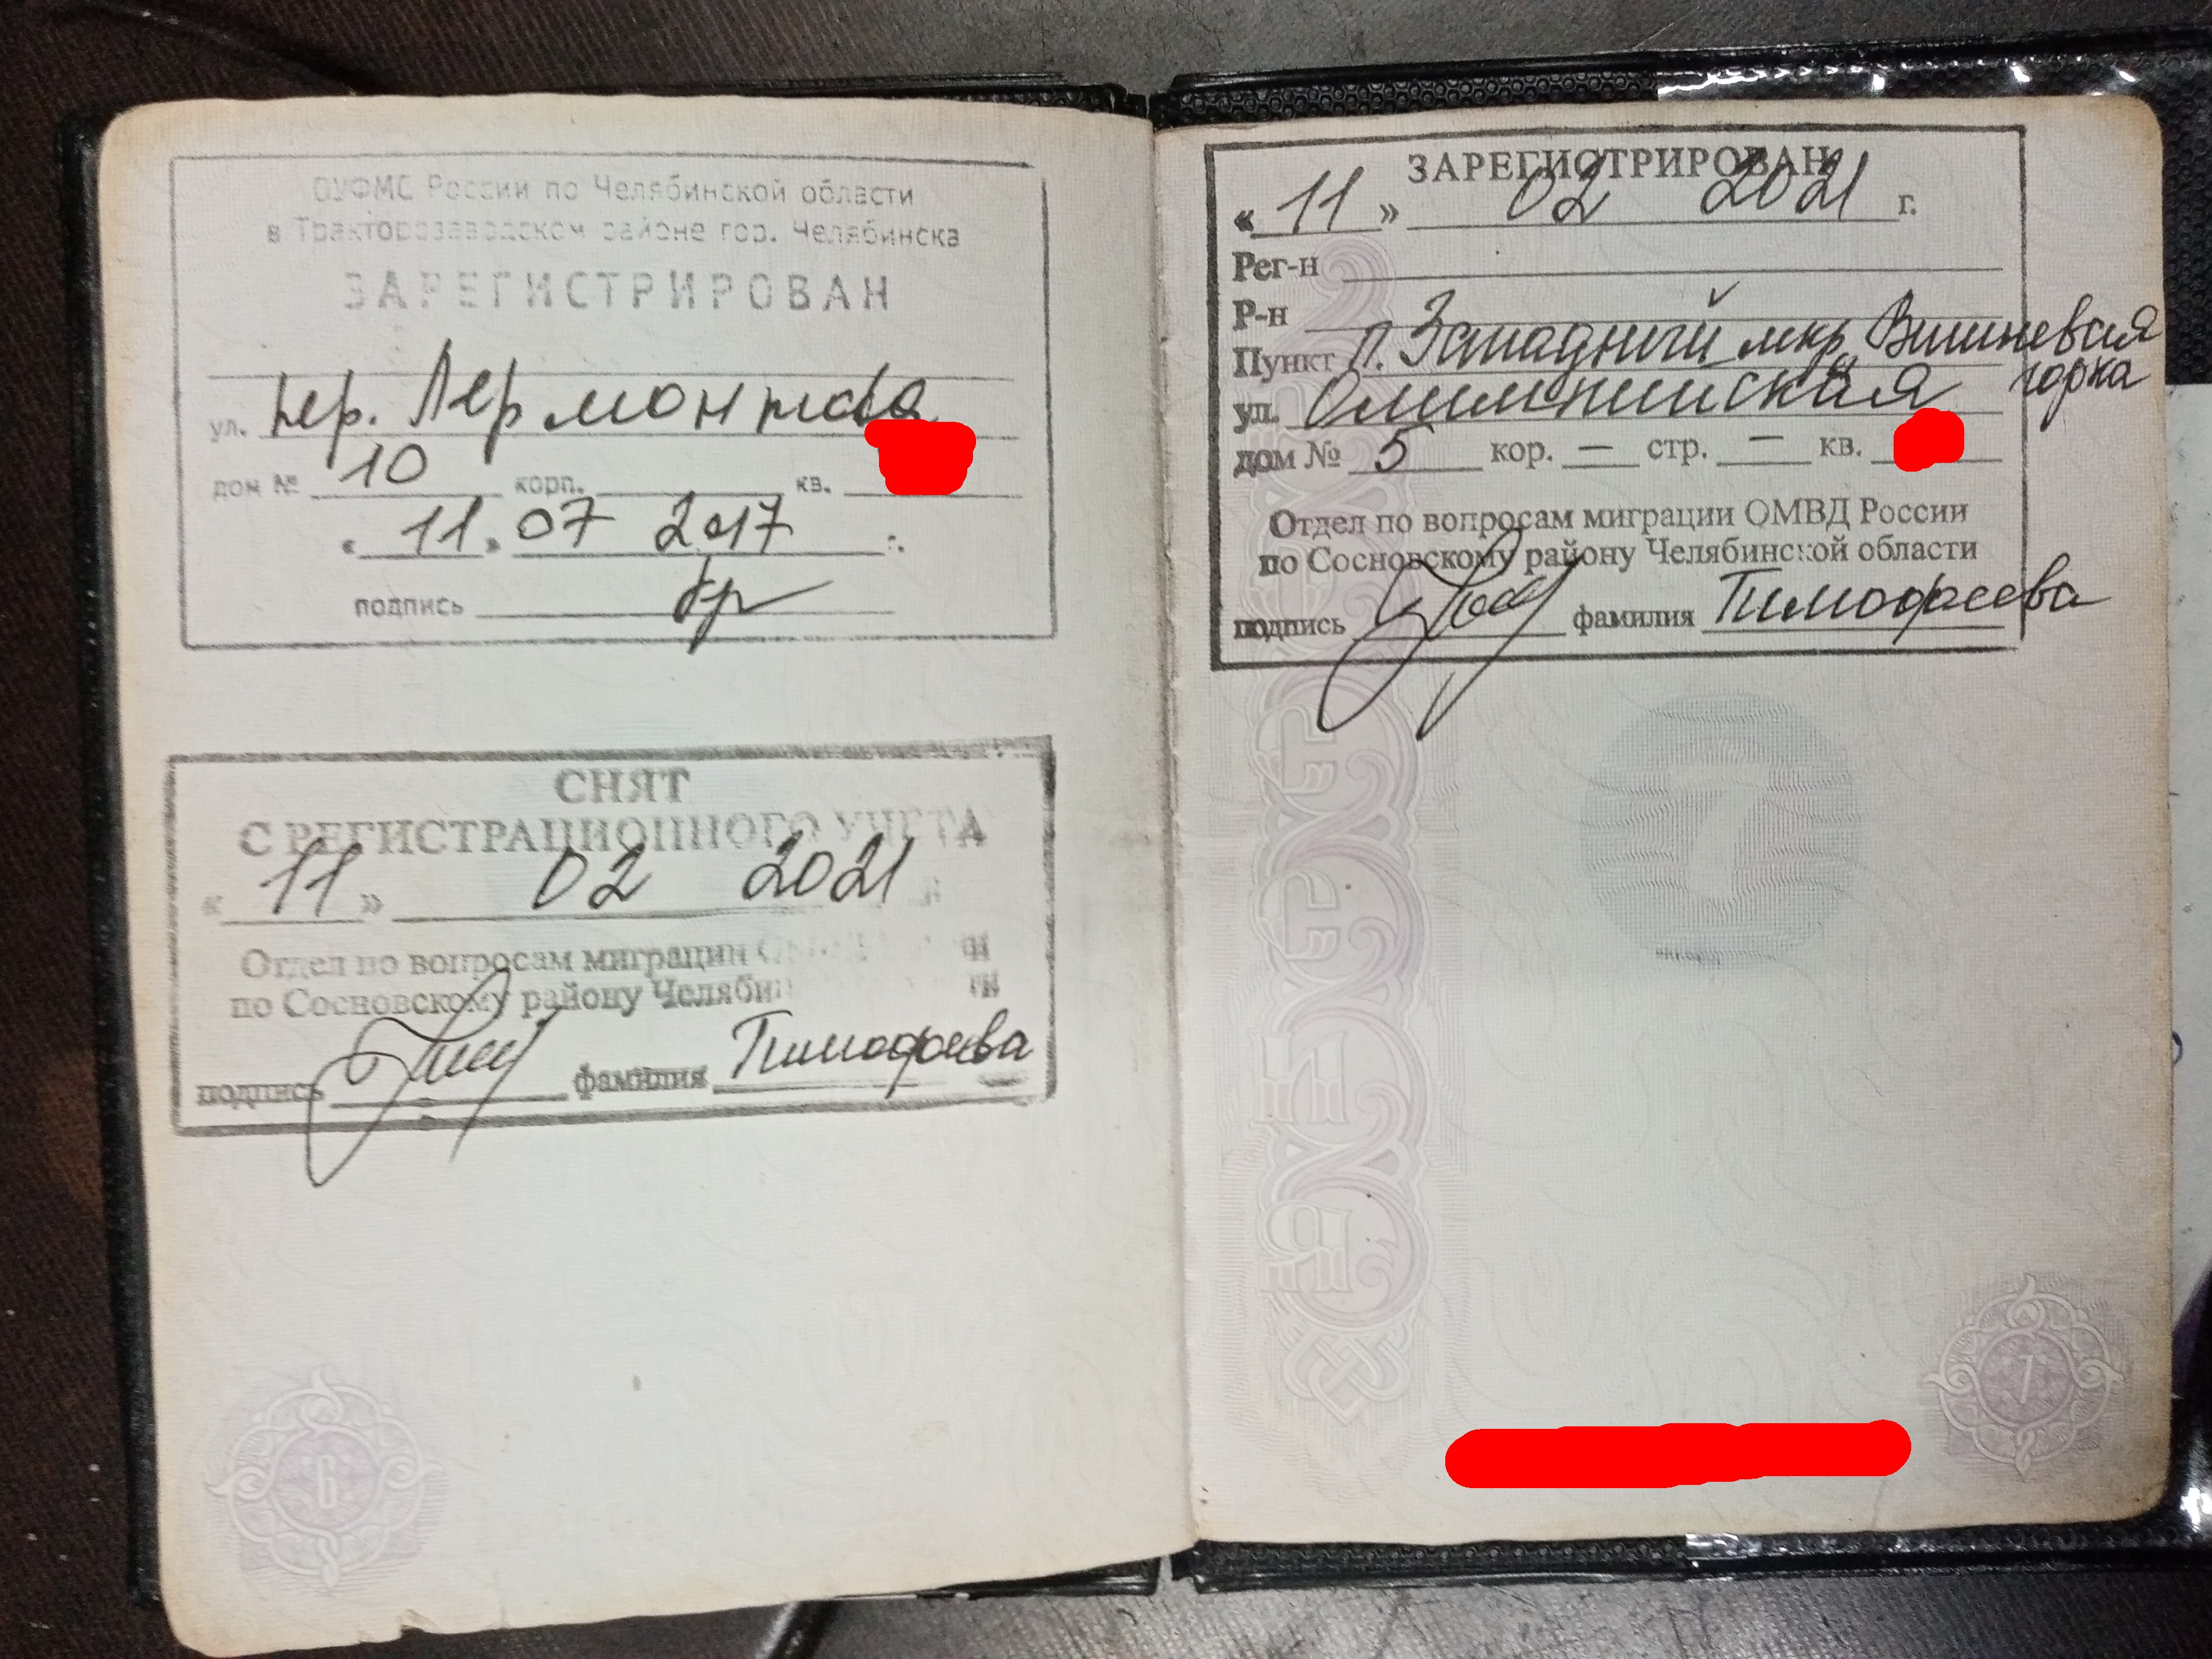 ОУФМС России по Челябинской области
в Тракторозаводском районе гор. Челябинска
ЗАРЕГИСТРИРОВАН
ул. пер. Лермонтова
дом № 10 корп. кв.
« 11 » 07 2017 г.
подпись
СНЯТ
С РЕГИСТРАЦИОННОГО УЧЕТА
« 11 » 02 2021
Отдел по вопросам миграции
по Сосновскому району Челяби
подпись фамилия Тимофеева
6
ЗАРЕГИСТРИРОВАН
« 11 » 02 2021 г.
Рег-н
Р-н
Пункт п. Западный мкр Вишневая
горка
ул. Олимпийская
дом № 5 кор. — стр. — кв.
Отдел по вопросам миграции ОМВД России
по Сосновскому району Челябинской области
подпись фамилия Тимофеева
7